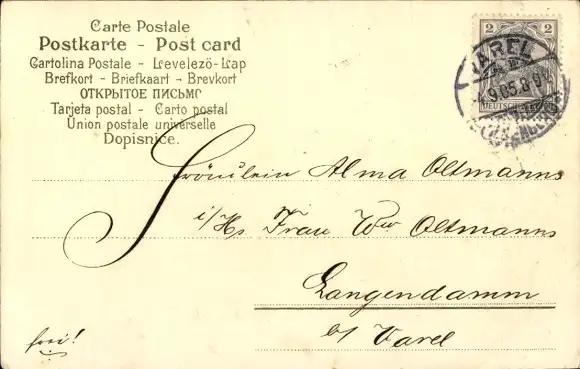 Carte Postale
Postkarte - Post card
Cartolina Postale - Levelező-Lap
Brefkort - Briefkaart - Brevkort
ОТКРЫТОЕ ПИСЬМО
Tarjeta postal - Carto postal
Union postale universelle
Dopisnice.
2 2
VAREL
DEUTSCHES
OLDENBURG
Fräulein Alma Oltmanns
i/Hs Frau Ww Oltmanns
Langendamm
b/ Varel
frei!